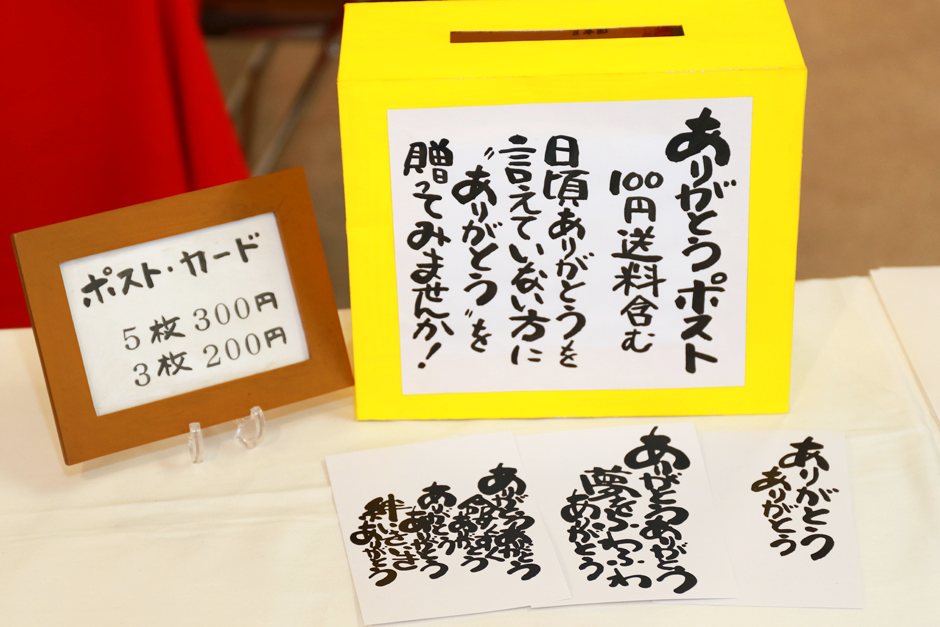 ポスト・カード
5枚300円
3枚200円
ありがとうポスト
100円送料含む
日頃ありがとうを
言えていない方に
“ありがとう”を
贈ってみませんか!
ありがとう
ありがとう
ありがとうありがとう
夢をうふふ・わ
ありがとう
ありがとう
ありがとう
ありがとう
絆
ありがとう